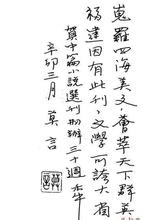 蒐羅四海美文,薈萃天下群英
福建因有此刊,文學可誇大省
賀中篇小說選刊刱辦三十週年
辛卯三月 莫言